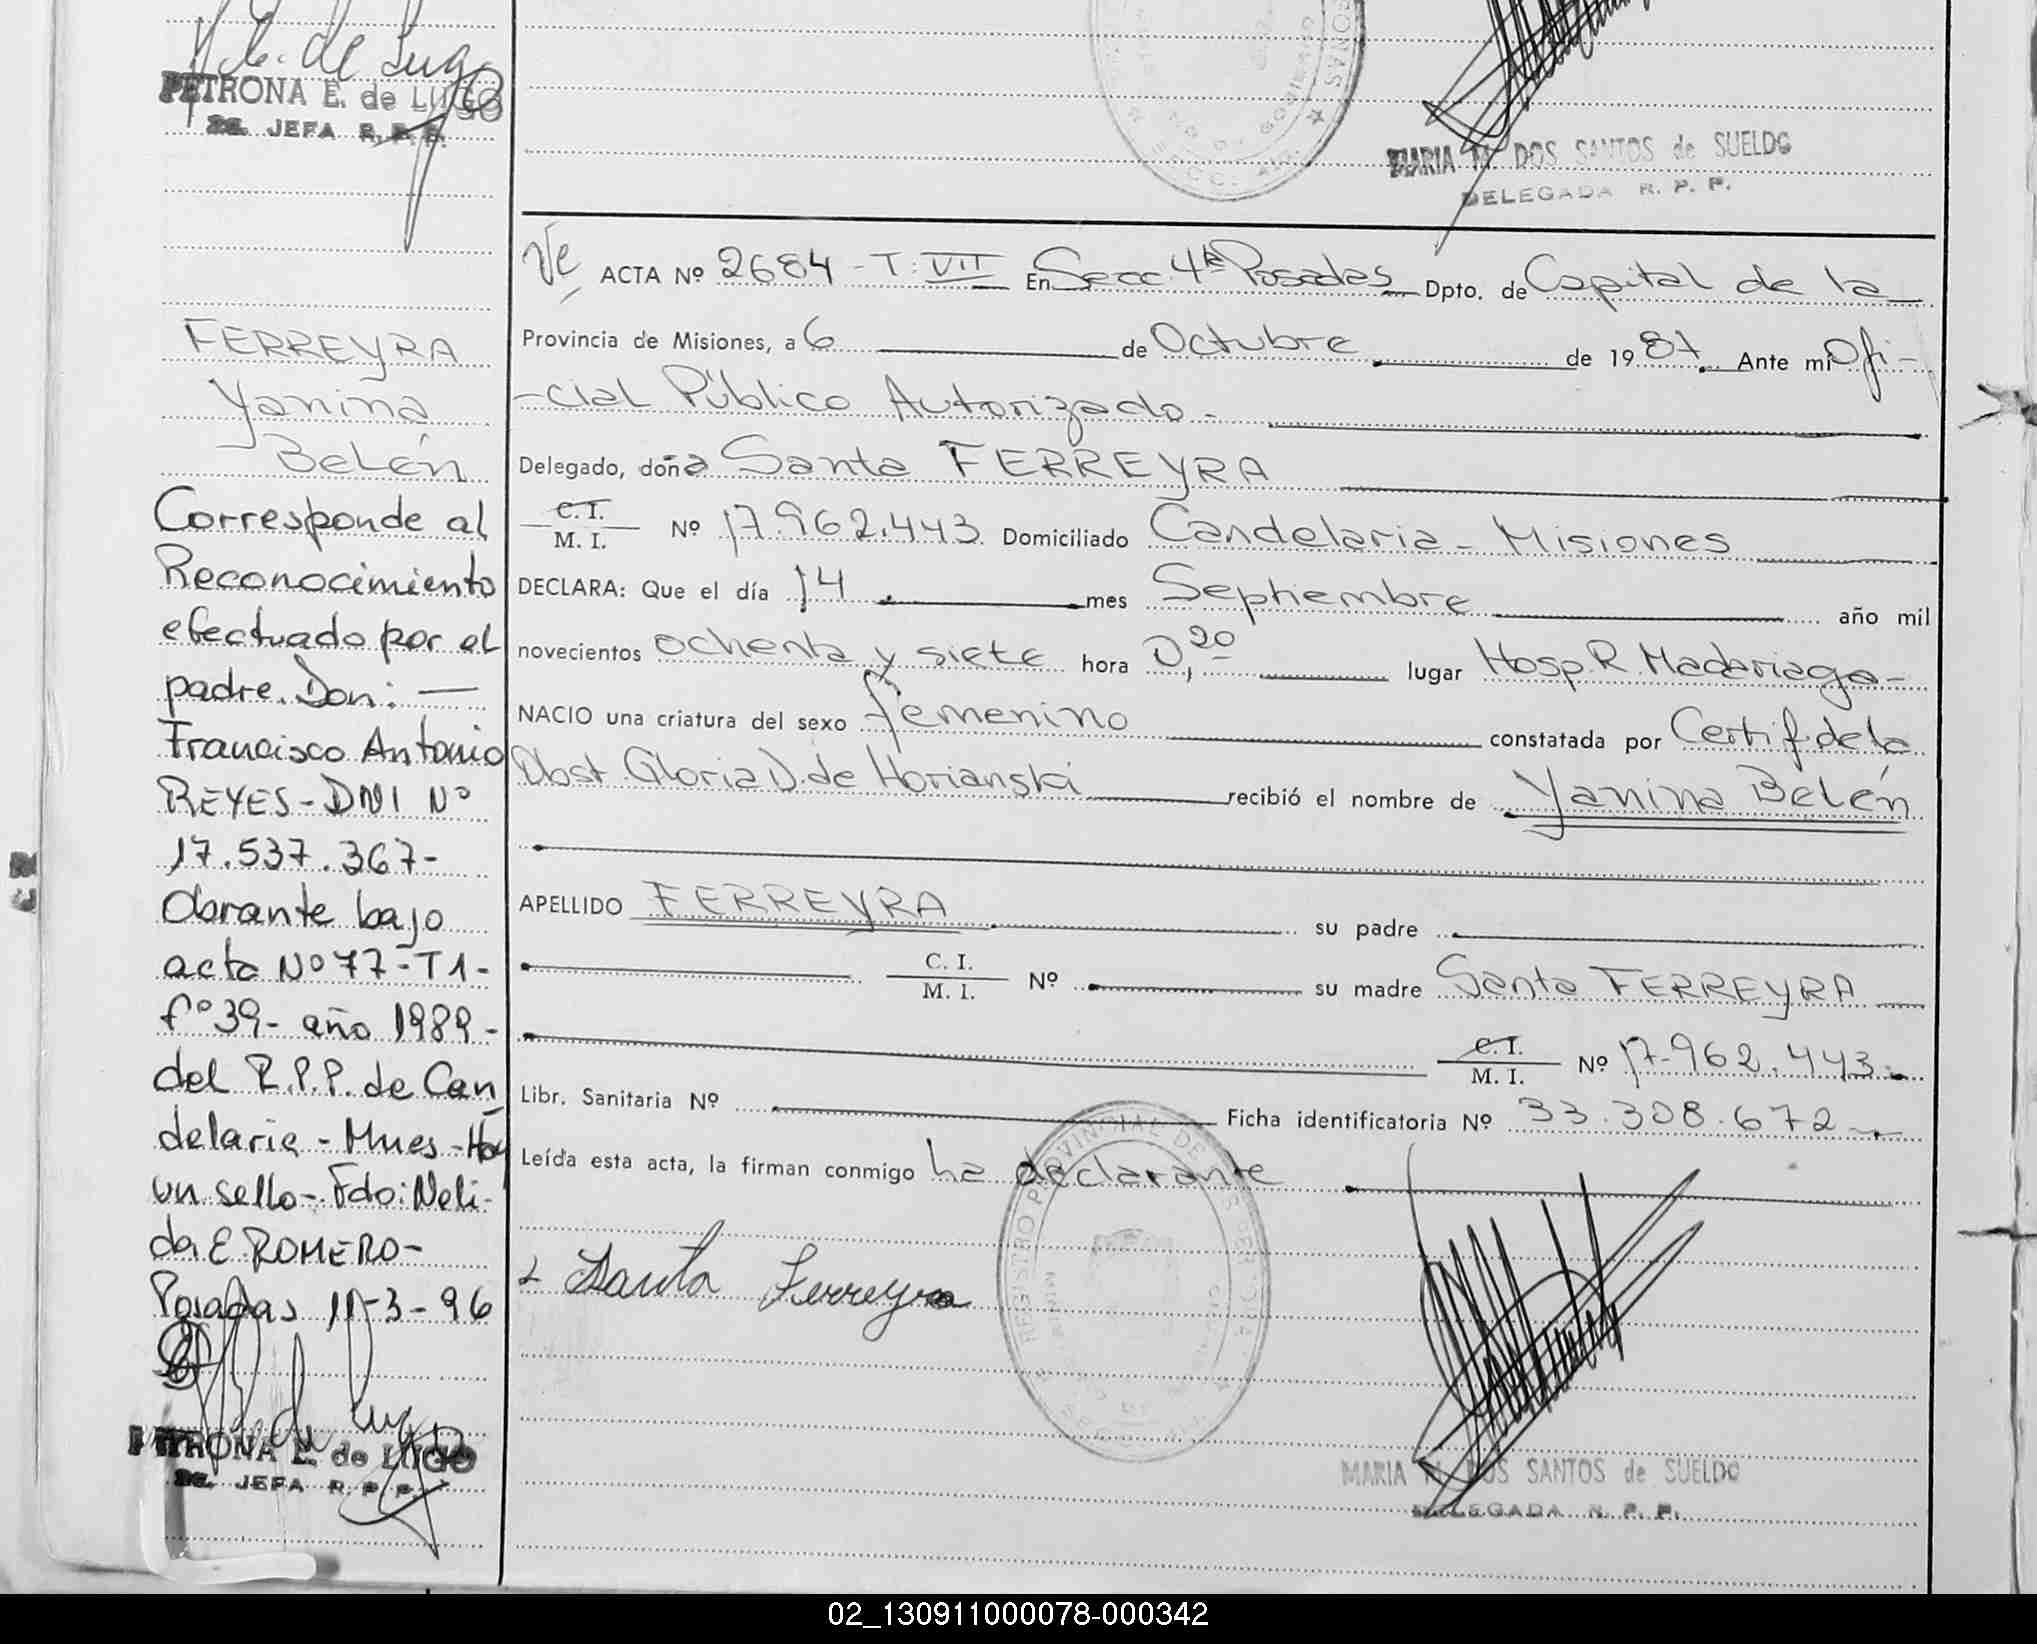 PETRONA E. de LUGO
2a. JEFA R. P. P.
MARIA M. DOS SANTOS de SUELDO
DELEGADA R. P. P.
FERREYRA
Yanina
Belén
Corresponde al
Reconocimiento
efectuado por el
padre. Don: —
Francisco Antonio
REYES - DNI Nº
17.537.367-
Obrante bajo
acta Nº 77 - T1-
fº 39- año 1989-
del R.P.P. de Can
delaria - Mnes - Hay
un sello - Fdo: Neli-
da E. ROMERO-
Posadas 11-3-96
PETRONA E. de LUGO
2a. JEFA R. P. P.
ACTA Nº 2684 - T: VII En Secc. 4ta Posadas Dpto. de Capital de la
Provincia de Misiones, a 6 de Octubre de 1987. Ante mi Ofi-
-cial Público Autorizado -
Delegado, doña Santa FERREYRA
C. I.
M. I. Nº 17.962.443 Domiciliado Candelaria - Misiones
DECLARA: Que el día 14 mes Septiembre año mil
novecientos ochenta y siete hora 0,20 lugar Hosp R. Madariaga -
NACIO una criatura del sexo femenino constatada por Certif. de la
Obst. Gloria D. de Horianski recibió el nombre de Yanina Belén
APELLIDO FERREYRA su padre
C. I.
M. I. Nº su madre Santa FERREYRA
C. I.
M. I. Nº 17.962.443
Libr. Sanitaria Nº Ficha identificatoria Nº 33.308.672
Leída esta acta, la firman conmigo la declarante
Santa Ferreyra
MARIA M. DOS SANTOS de SUELDO
DELEGADA R. P. P.
02_130911000078-000342